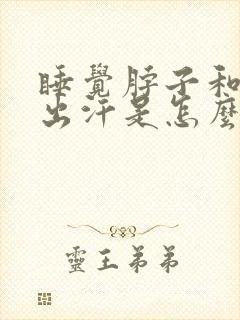 睡覺脖子和
出汗是怎麼
靈王弟弟